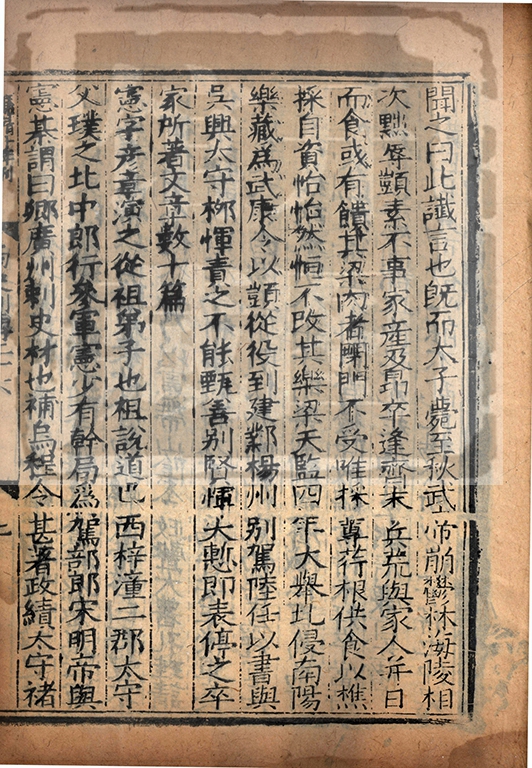 聞之曰此讖言也既而太子薨至秋武帝崩鬱林海陵相
次黜辱顗素不事家産及昂卒逢齊末兵荒與家人并日
而食或有饋其梁肉者閉門不受唯採蓴荇根供食以樵
採自資怡怡然恒不改其樂梁天監四年大舉北侵南陽
樂藏為武康令以顗從役到建鄴楊州别駕陸任以書與
吳興太守柳惲責之不能甄善别賢惲大慙即表停之卒
家所著文章數十篇
憲字彦章演之從祖弟子也祖說道巴西梓潼二郡太守
父璞之北中郎行參軍憲少有幹局為駕部郎宋明帝與
憲棊謂曰卿廣州刺史材也補烏程令甚著政績太守褚